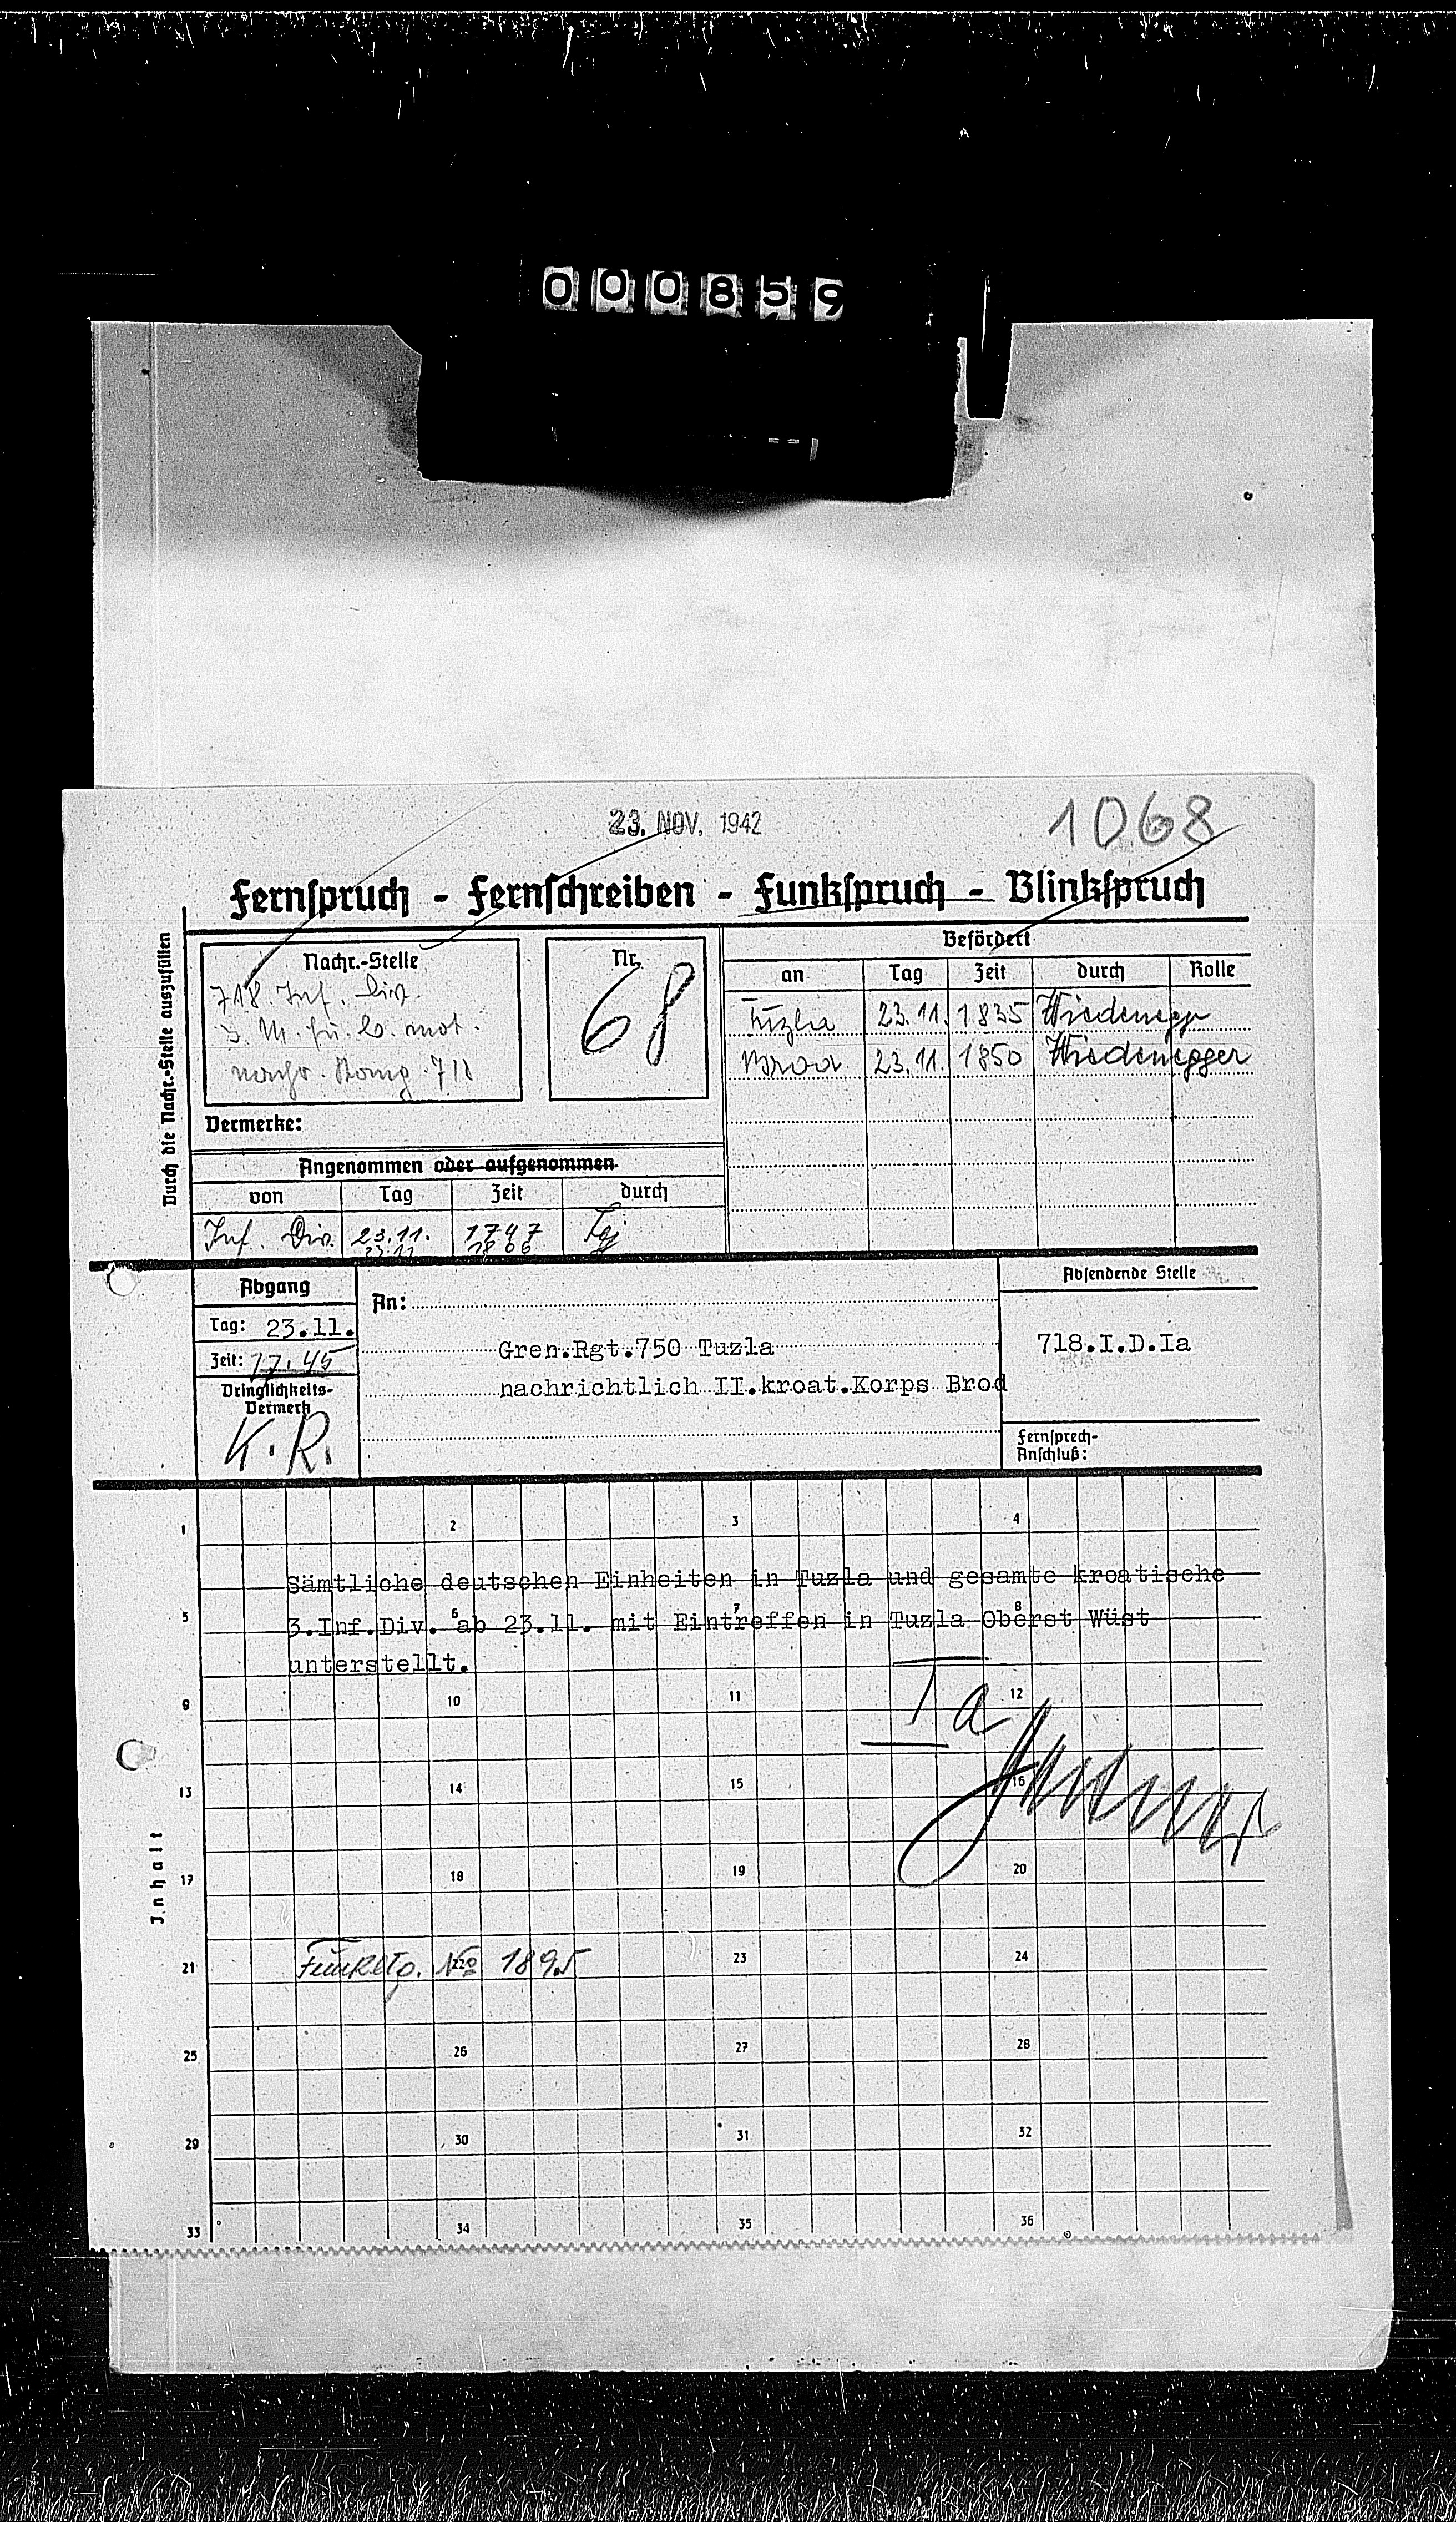 000859
23. NOV. 1942
1068
Fernspruch - Fernschreiben - Funkspruch - Blinkspruch
Durch die Nachr.-Stelle auszufüllen
Nachr.-Stelle
718. Inf. Div.
mot.
Nr.
68
Vermerke:
Befördert
an Tag Zeit durch Rolle
Tuzla 23.11. 1835 Wiedenegg
Brod 23.11. 1850 Wiedenegger
Angenommen oder aufgenommen
von Tag Zeit durch
Inf. Div. 23.11. 1747
23.11 1806
Abgang
Tag: 23.11.
Zeit: 17.45
Dringlichkeits-
Vermerk
K.R.
An:
Gren.Rgt.750 Tuzla
nachrichtlich II.kroat.Korps Brod
Absendende Stelle
718.I.D.Ia
Fernsprech-
Anschluß:
1 2 3 4
Sämtliche deutschen Einheiten in Tuzla und gesamte kroatische
5 6 7 8
3.Inf.Div. ab 23.11. mit Eintreffen in Tuzla Oberst Wüst
unterstellt.
9 10 11 12
Ia
13 14 15 16
Inhalt
17 18 19 20
21 22 23 24
Funkstp. No 1895
25 26 27 28
29 30 31 32
33 34 35 36